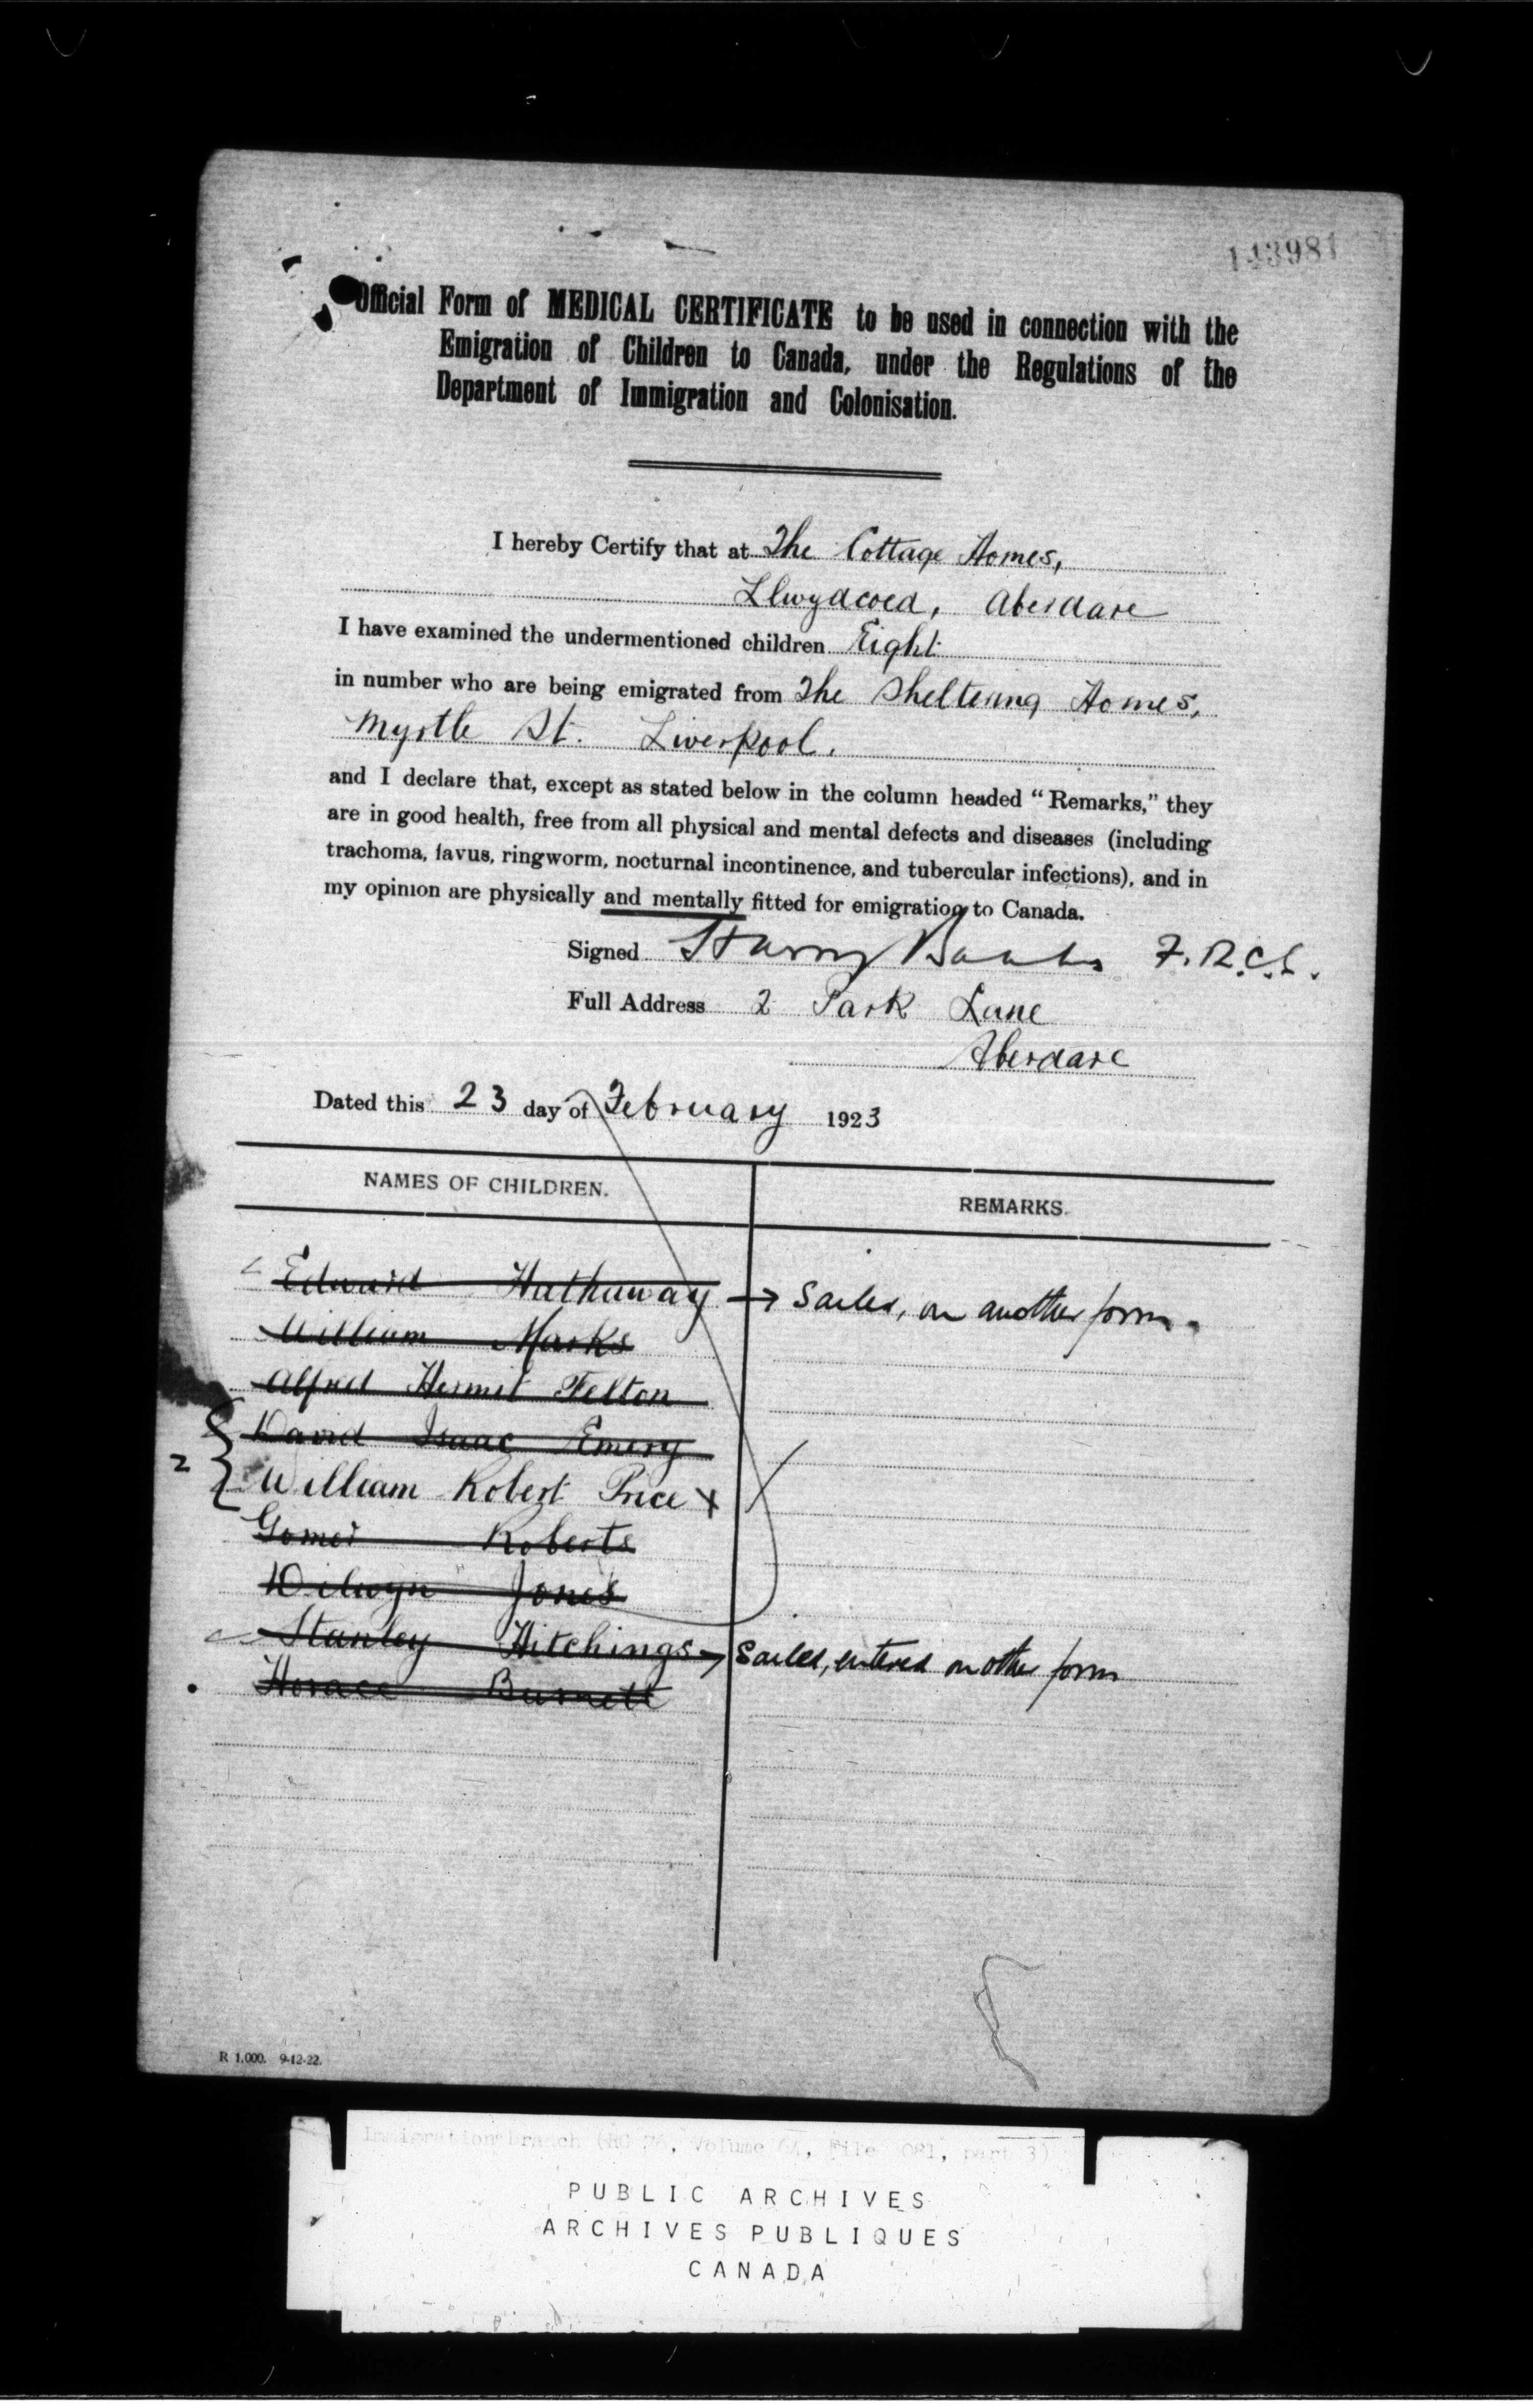 143981
Official Form of MEDICAL CERTIFICATE to be used in connection with the
Emigration of Children to Canada, under the Regulations of the
Department of Immigration and Colonisation.
I hereby Certify that at The Cottage Homes,
Llwydcoed, Aberdare
I have examined the undermentioned children Eight
in number who are being emigrated from The Sheltering Homes,
Myrtle St. Liverpool.
and I declare that, except as stated below in the column headed “Remarks,” they
are in good health, free from all physical and mental defects and diseases (including
trachoma, favus, ringworm, nocturnal incontinence, and tubercular infections), and in
my opinion are physically and mentally fitted for emigration to Canada.
Signed Harry Banks F.R.C.S.
Full Address 2 Park Lane
Aberdare
Dated this 23 day of February 1923
NAMES OF CHILDREN. REMARKS.
Edward Hathaway → Sailed, on another form.
William Marks
Alfred Hermit Felton
David Isaac Emery
2 William Robert Price x
Gomer Roberts
Dilwyn Jones
Stanley Hitchings → Sailed, entered on other form
Horace Burnett
R 1,000. 9-12-22.
Immigration branch (RG 76, Volume 64, File 3081, part 3)
PUBLIC ARCHIVES
ARCHIVES PUBLIQUES
CANADA